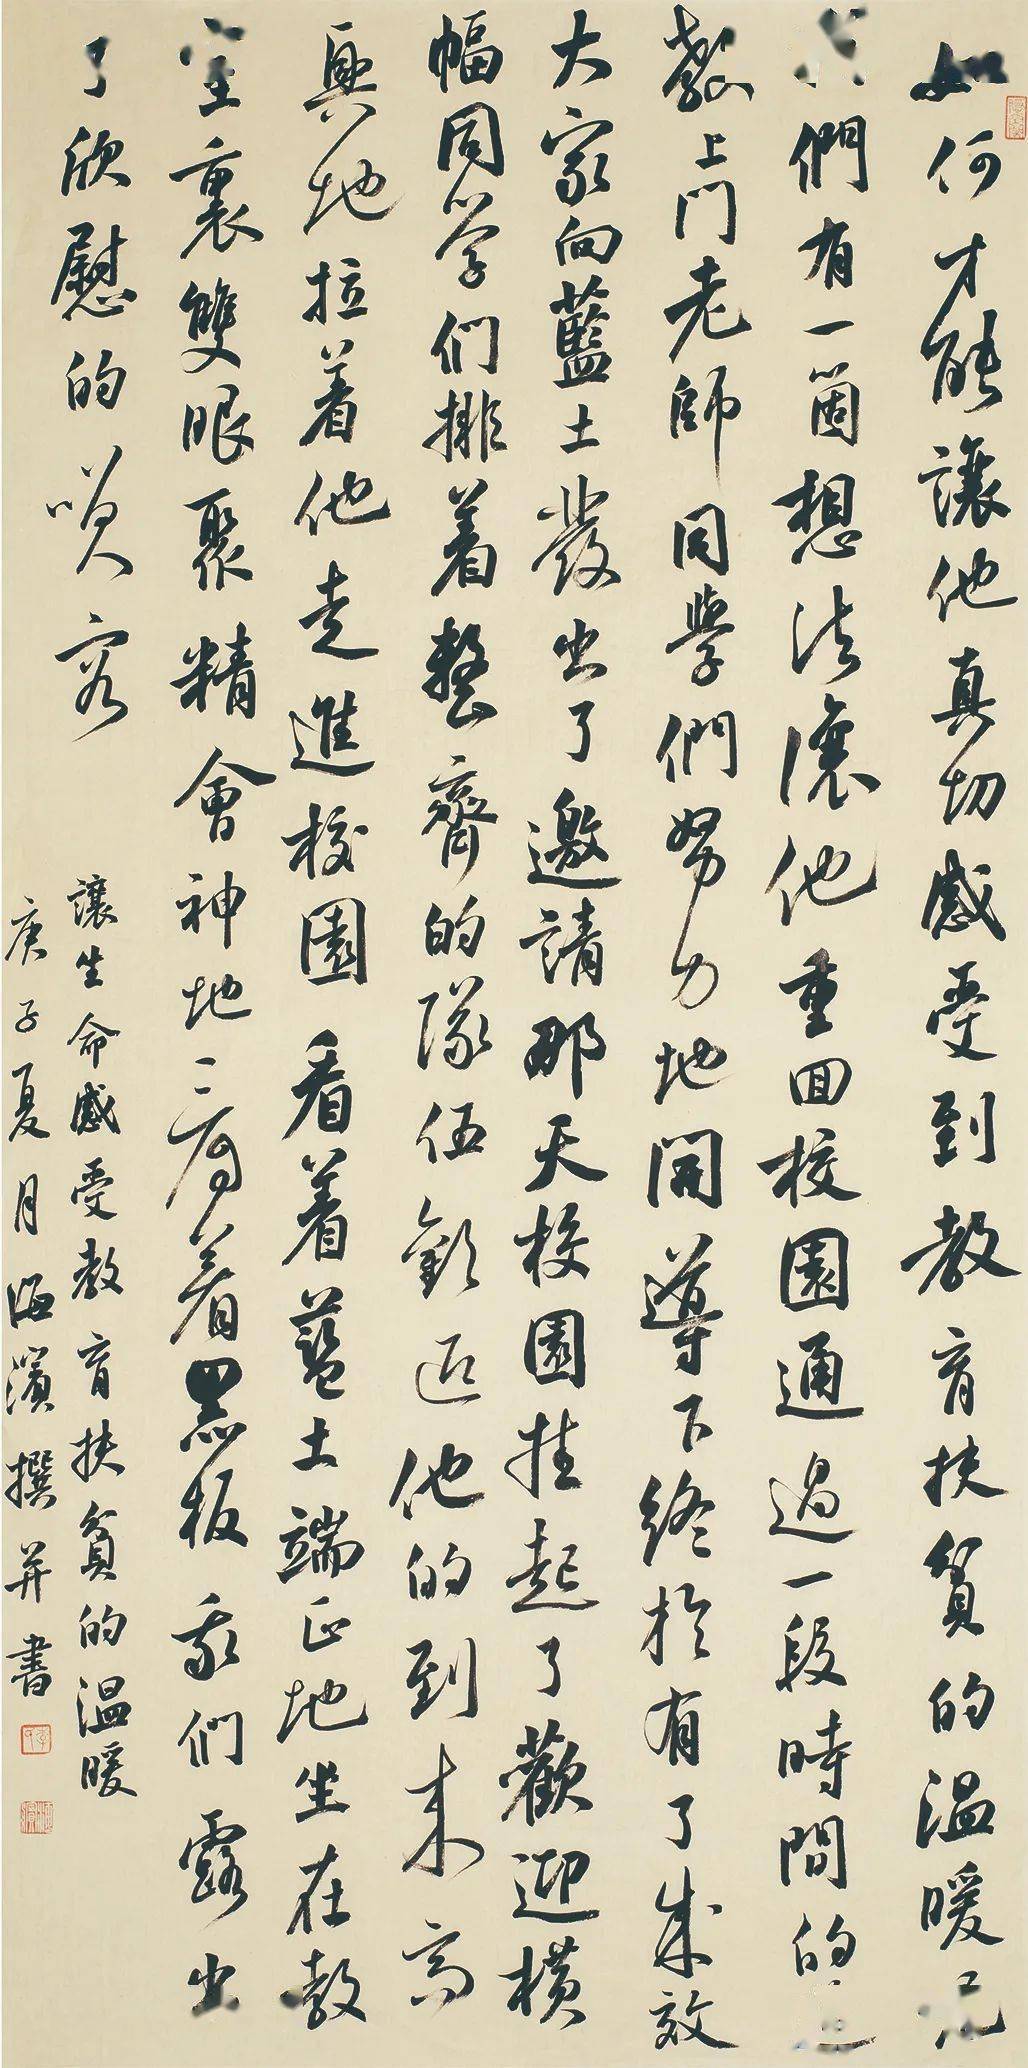 如何才能讓他真切感受到教育扶貧的温暖呢
我們有一箇想法讓他重回校園通過一段時間的送
教上門老師同學們努力地開導下終於有了成效
大家向藍土發出了邀請那天校園挂起了歡迎橫
幅同学们排着整齊的隊伍歡迎他的到来高
興地拉着他走進校園看着藍土端正地坐在教
室裏雙眼聚精會神地盯着黑板我們露出
了欣慰的笑容
讓生命感受教育扶貧的温暖
庚子夏月海濱撰并書